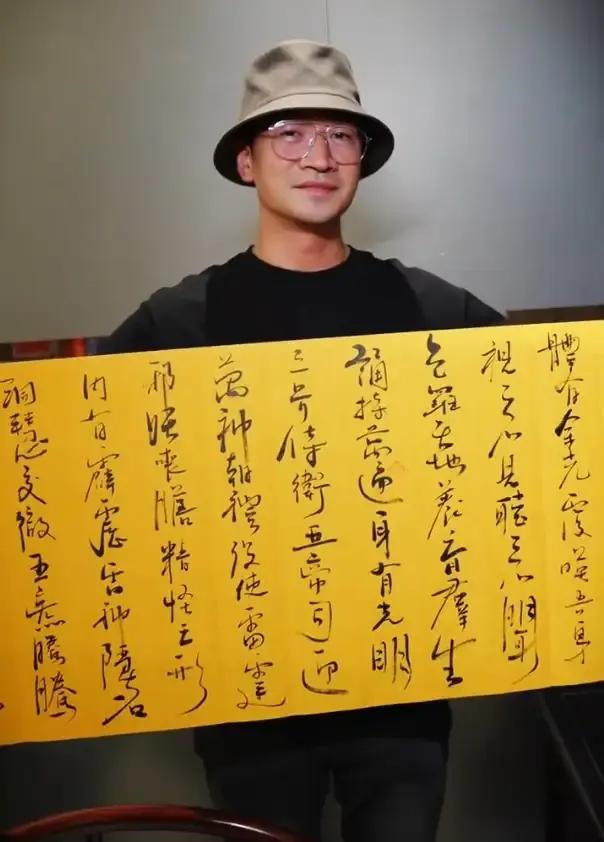 體有金光覆暎吾身
視之不見聽之不聞
包羅天地養育羣生
誦持萬遍身有光明
三界侍衛五帝司迎
萬神朝禮役使雷霆
邪妖喪膽精怪亡形
內有霹靂雷神隱名
洞慧交徹五炁騰騰